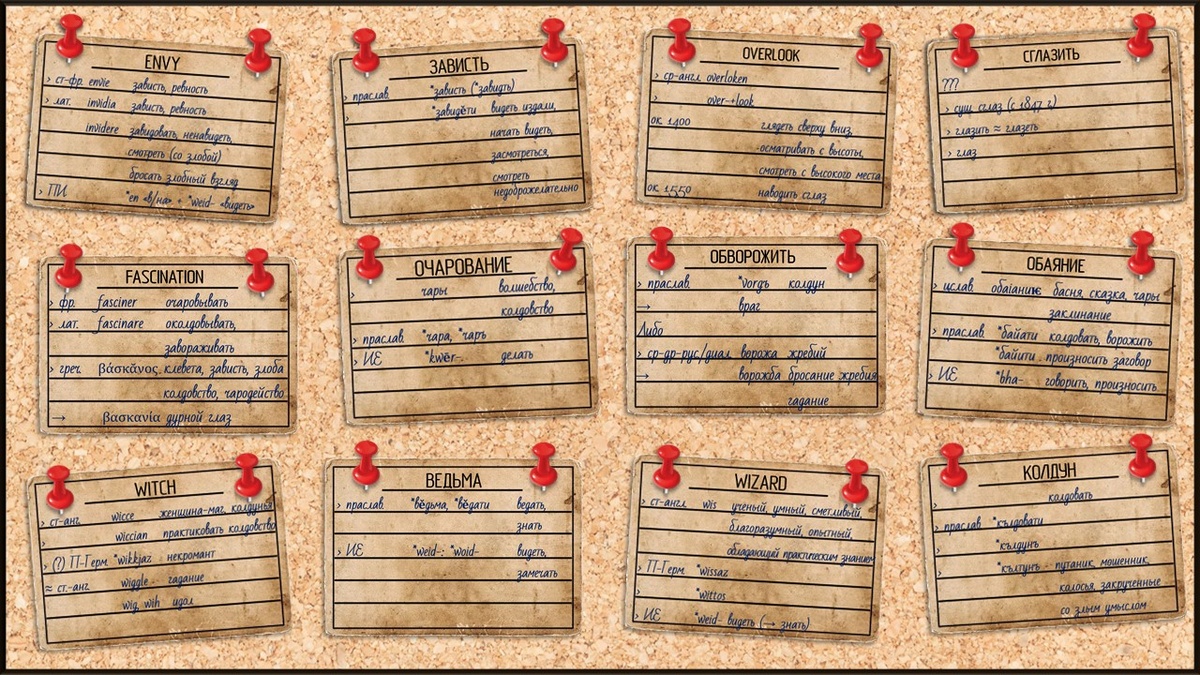 ENVY
> ст-фр. envie зависть, ревность
> лат. invidia зависть, ревность
invidere завидовать, ненавидеть,
смотреть (со злобой)
бросать злобный взгляд
> ПИ. *en «в/на» + *weid- «видеть»
ЗАВИСТЬ
> праслав. *зависть (*завидть)
> *завидѣти видеть издали,
начать видеть,
засмотреться,
смотреть
недоброжелательно
OVERLOOK
> ср-англ. overloken
> over-+look
ок. 1400 глядеть сверху вниз,
-осматривать с высоты,
смотреть с высокого места
ок. 1550 наводить сглаз
СГЛАЗИТЬ
???
> сущ. сглаз (с 1847 г.)
> глазить ≈ глазеть
> глаз
FASCINATION
> фр. fasciner очаровывать
> лат. fascinare околдовывать,
завораживать
> греч. βάσκᾰνος клевета, зависть, злоба
колдовство, чародейство
→ βασκανία дурной глаз
ОЧАРОВАНИЕ
> чары волшебство,
колдовство
> праслав. *чара, *чаръ
> ИЕ *kwēr- делать
ОБВОРОЖИТЬ
> праслав. *vorgъ колдун
→ враг
Либо
> ср-др-рус/диал. ворожа жребий
→ ворожба бросание жребия
гадание
ОБАЯНИЕ
> цслав. обаіаниѥ басня, сказка, чары
заклинание
> праслав. *байати колдовать, ворожить
*байити - произносить заговор
> ИЕ *bha- говорить, произносить
WITCH
> ст-анг. wicce женщина-маг, колдунья
> wiccian практиковать колдовство
> (?) П-Герм. *wikkjaz некромант
≈ ст.-анг. wiggle - гадание
wig, wih идол
ВЕДЬМА
> праслав. *вѣдьма, *вѣдати ведать,
знать
> ИЕ *weid-; *woid- видеть,
замечать
WIZARD
> ст-англ. wis ученый, умный, сметливый,
благоразумный, опытный,
обладающей практическим знанием
> П-Герм. *wissaz
> *wittos
> ИЕ *weid- видеть (→ знать)
КОЛДУН
> колдовать
> праслав. *кълдовати
> *кълдунъ
> *кълтунъ - путаник, мошенник,
колосья, закрученные
со злым умыслом